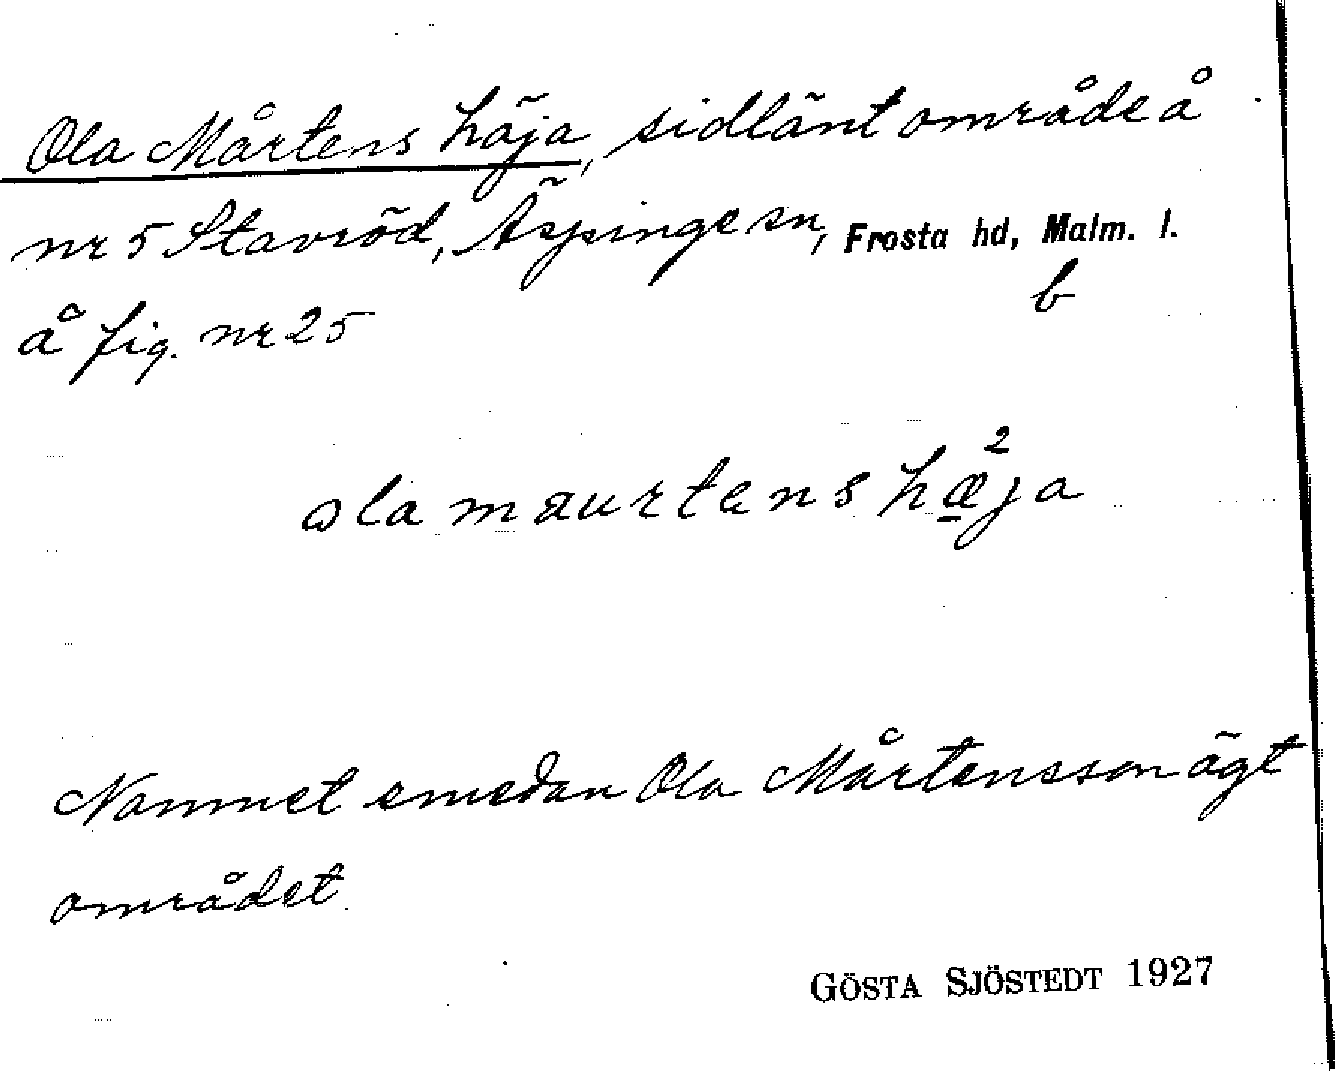 Ola Mårtens häja, sidlänt område å
nr 5 Stavröd, Äspinge sn, Frosta hd, Malm. l.
b
å fig. nr 25
ola maurtens hæ̱²ja
Namnet emedan Ola Mårtensson ägt
området.
GÖSTA SJÖSTEDT 1927